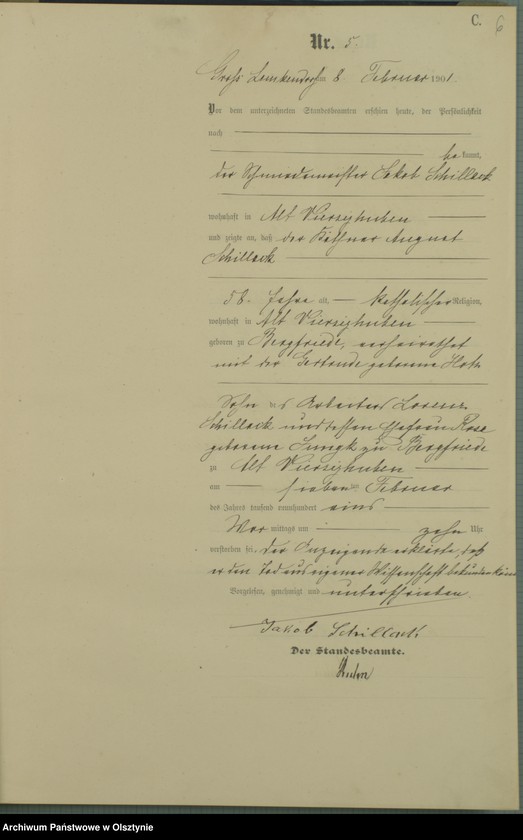 C. 6
Nr. 5.
Groß Lemkendorf am 8. Februar 1901.
Vor dem unterzeichneten Standesbeamten erschien heute, der Persönlichkeit
nach
be kannt,
der Schmiedemeister Jakob Schillack
wohnhaft in Alt Vierzighuben
und zeigte an, daß der Käthner August
Schillack
58 Jahre alt, katholischer Religion,
wohnhaft in Alt Vierzighuben
geboren zu Bergfriede, verheirathet
mit der Gertrude geborene
Sohn des Arbeiters Lorenz
Schillack und dessen Ehefrau Rosa
geborene Jungk zu Bergfriede
zu Alt Vierzighuben
am sieben ten Februar
des Jahres tausend neunhundert eins
Vor mittags um zehn Uhr
verstorben sei. Der Anzeigende erklärte, daß
er den Tod aus eigener Wissenschaft bekunden könne
Vorgelesen, genehmigt und unterschrieben
Jakob Schillack
Der Standesbeamte.
Archiwum Państwowe w Olsztynie